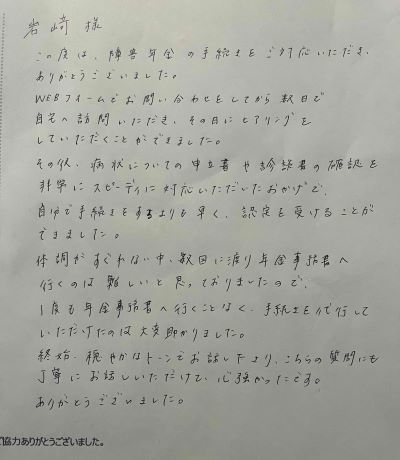 岩﨑 様
この度は、障害年金の手続きをご対応いただき、
ありがとうございました。
WEBフォームでお問い合わせをしてから数日で
自宅へ訪問いただき、その日にヒアリングを
していただくことができました。
その後、病状についての申立書や診断書の確認を
非常にスピーディに対応いただいたおかげで、
自分で手続きをするよりも早く、認定を受けることが
できました。
体調がすぐれない中、数回に渡り年金事務署へ
行くのは難しいと思っておりましたので、
1度も年金事務署へ行くことなく、手続きを代行して
いただけたのは大変助かりました。
終始、穏やかなトーンでお話したり、こちらの質問にも
丁寧にお話しいただけて、心強かったです。
ありがとうございました。
ご協力ありがとうございました。